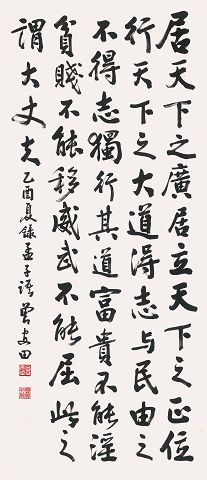 居天下之廣居立天下之正位
行天下之大道得志与民由之
不得志獨行其道富貴不能淫
貧賤不能移威武不能屈此之
謂大丈夫 乙酉夏錄孟子語